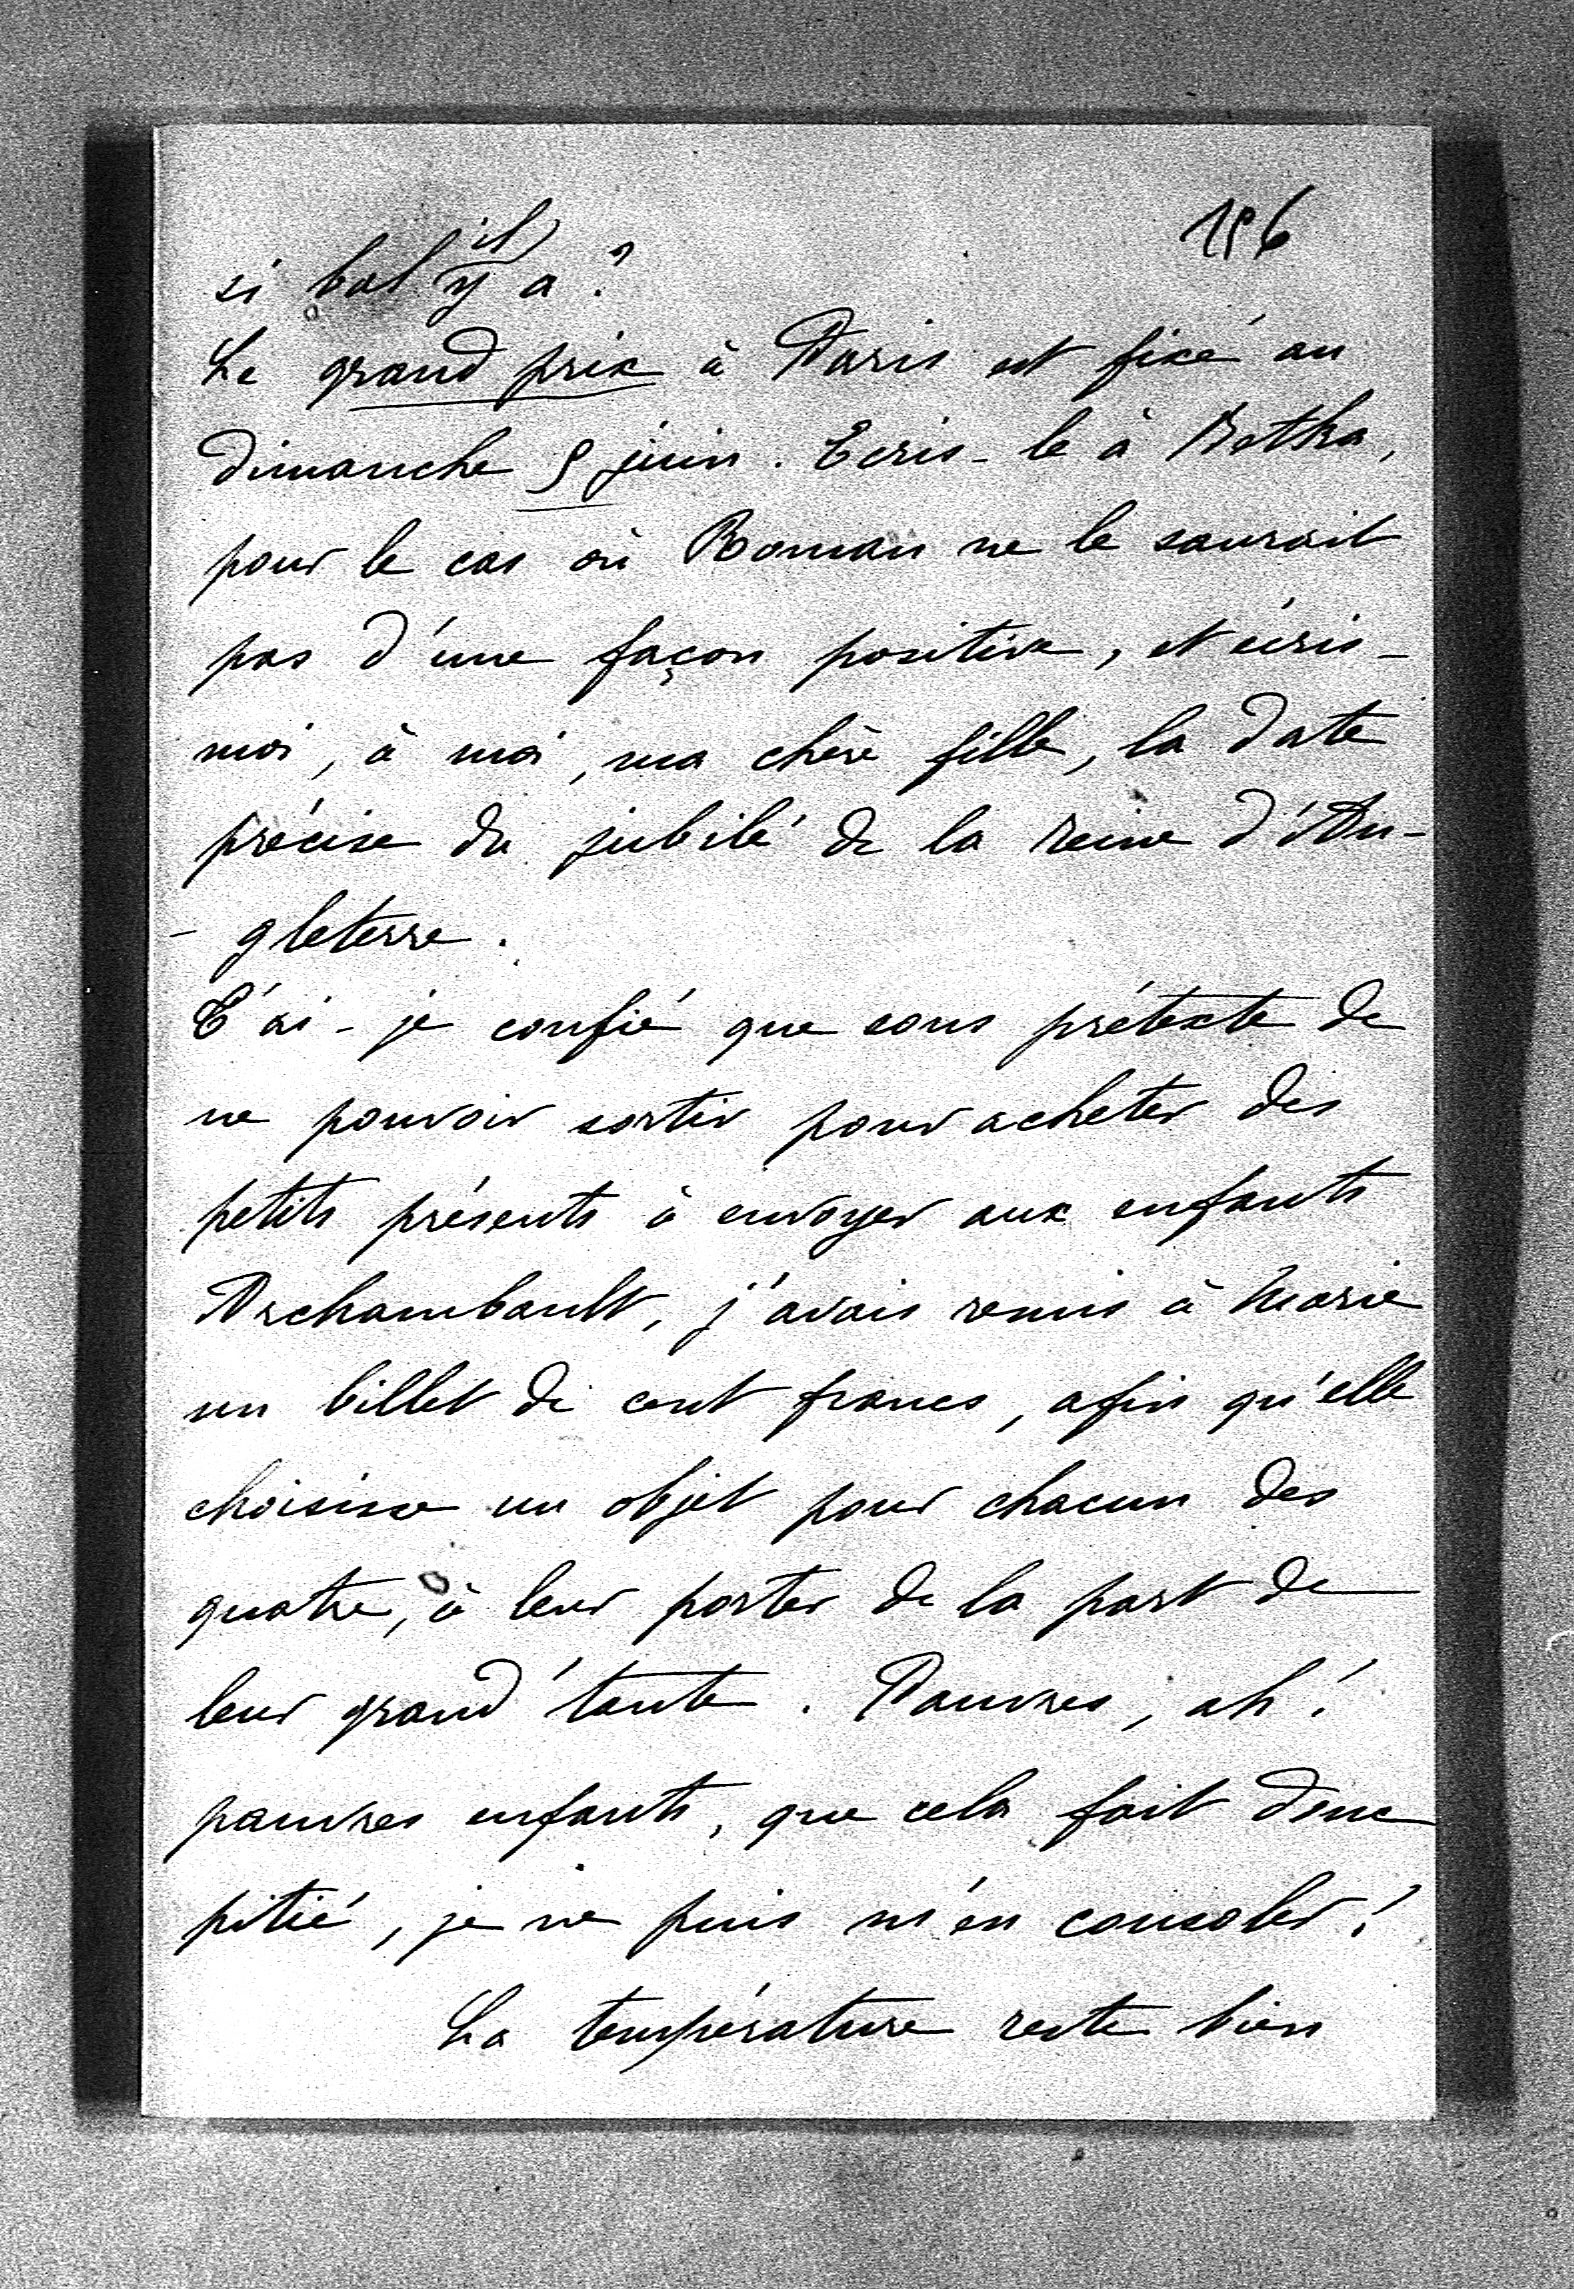 196
si bal il y a ?
Le grand prix à Paris est fixé au
dimanche 5 juin. Ecris-le à Betka,
pour le cas où Roman ne le saurait
pas d'une façon positive, et écris-
moi, à moi, ma chère fille, la date
précise du jubilé de la reine d'An-
- gleterre.
T'ai-je confié que sous prétexte de
ne pouvoir sortir pour acheter des
petits présents à envoyer aux enfants
Archambault, j'avais remis à Marie
un billet de cent francs, afin qu'elle
choisisse un objet pour chacun des
quatre, à leur porter de la part de
leur grand'tante. Pauvres, ah !
pauvres enfants, que cela fait donc
pitié, je ne puis m'en consoler !
La température reste bien